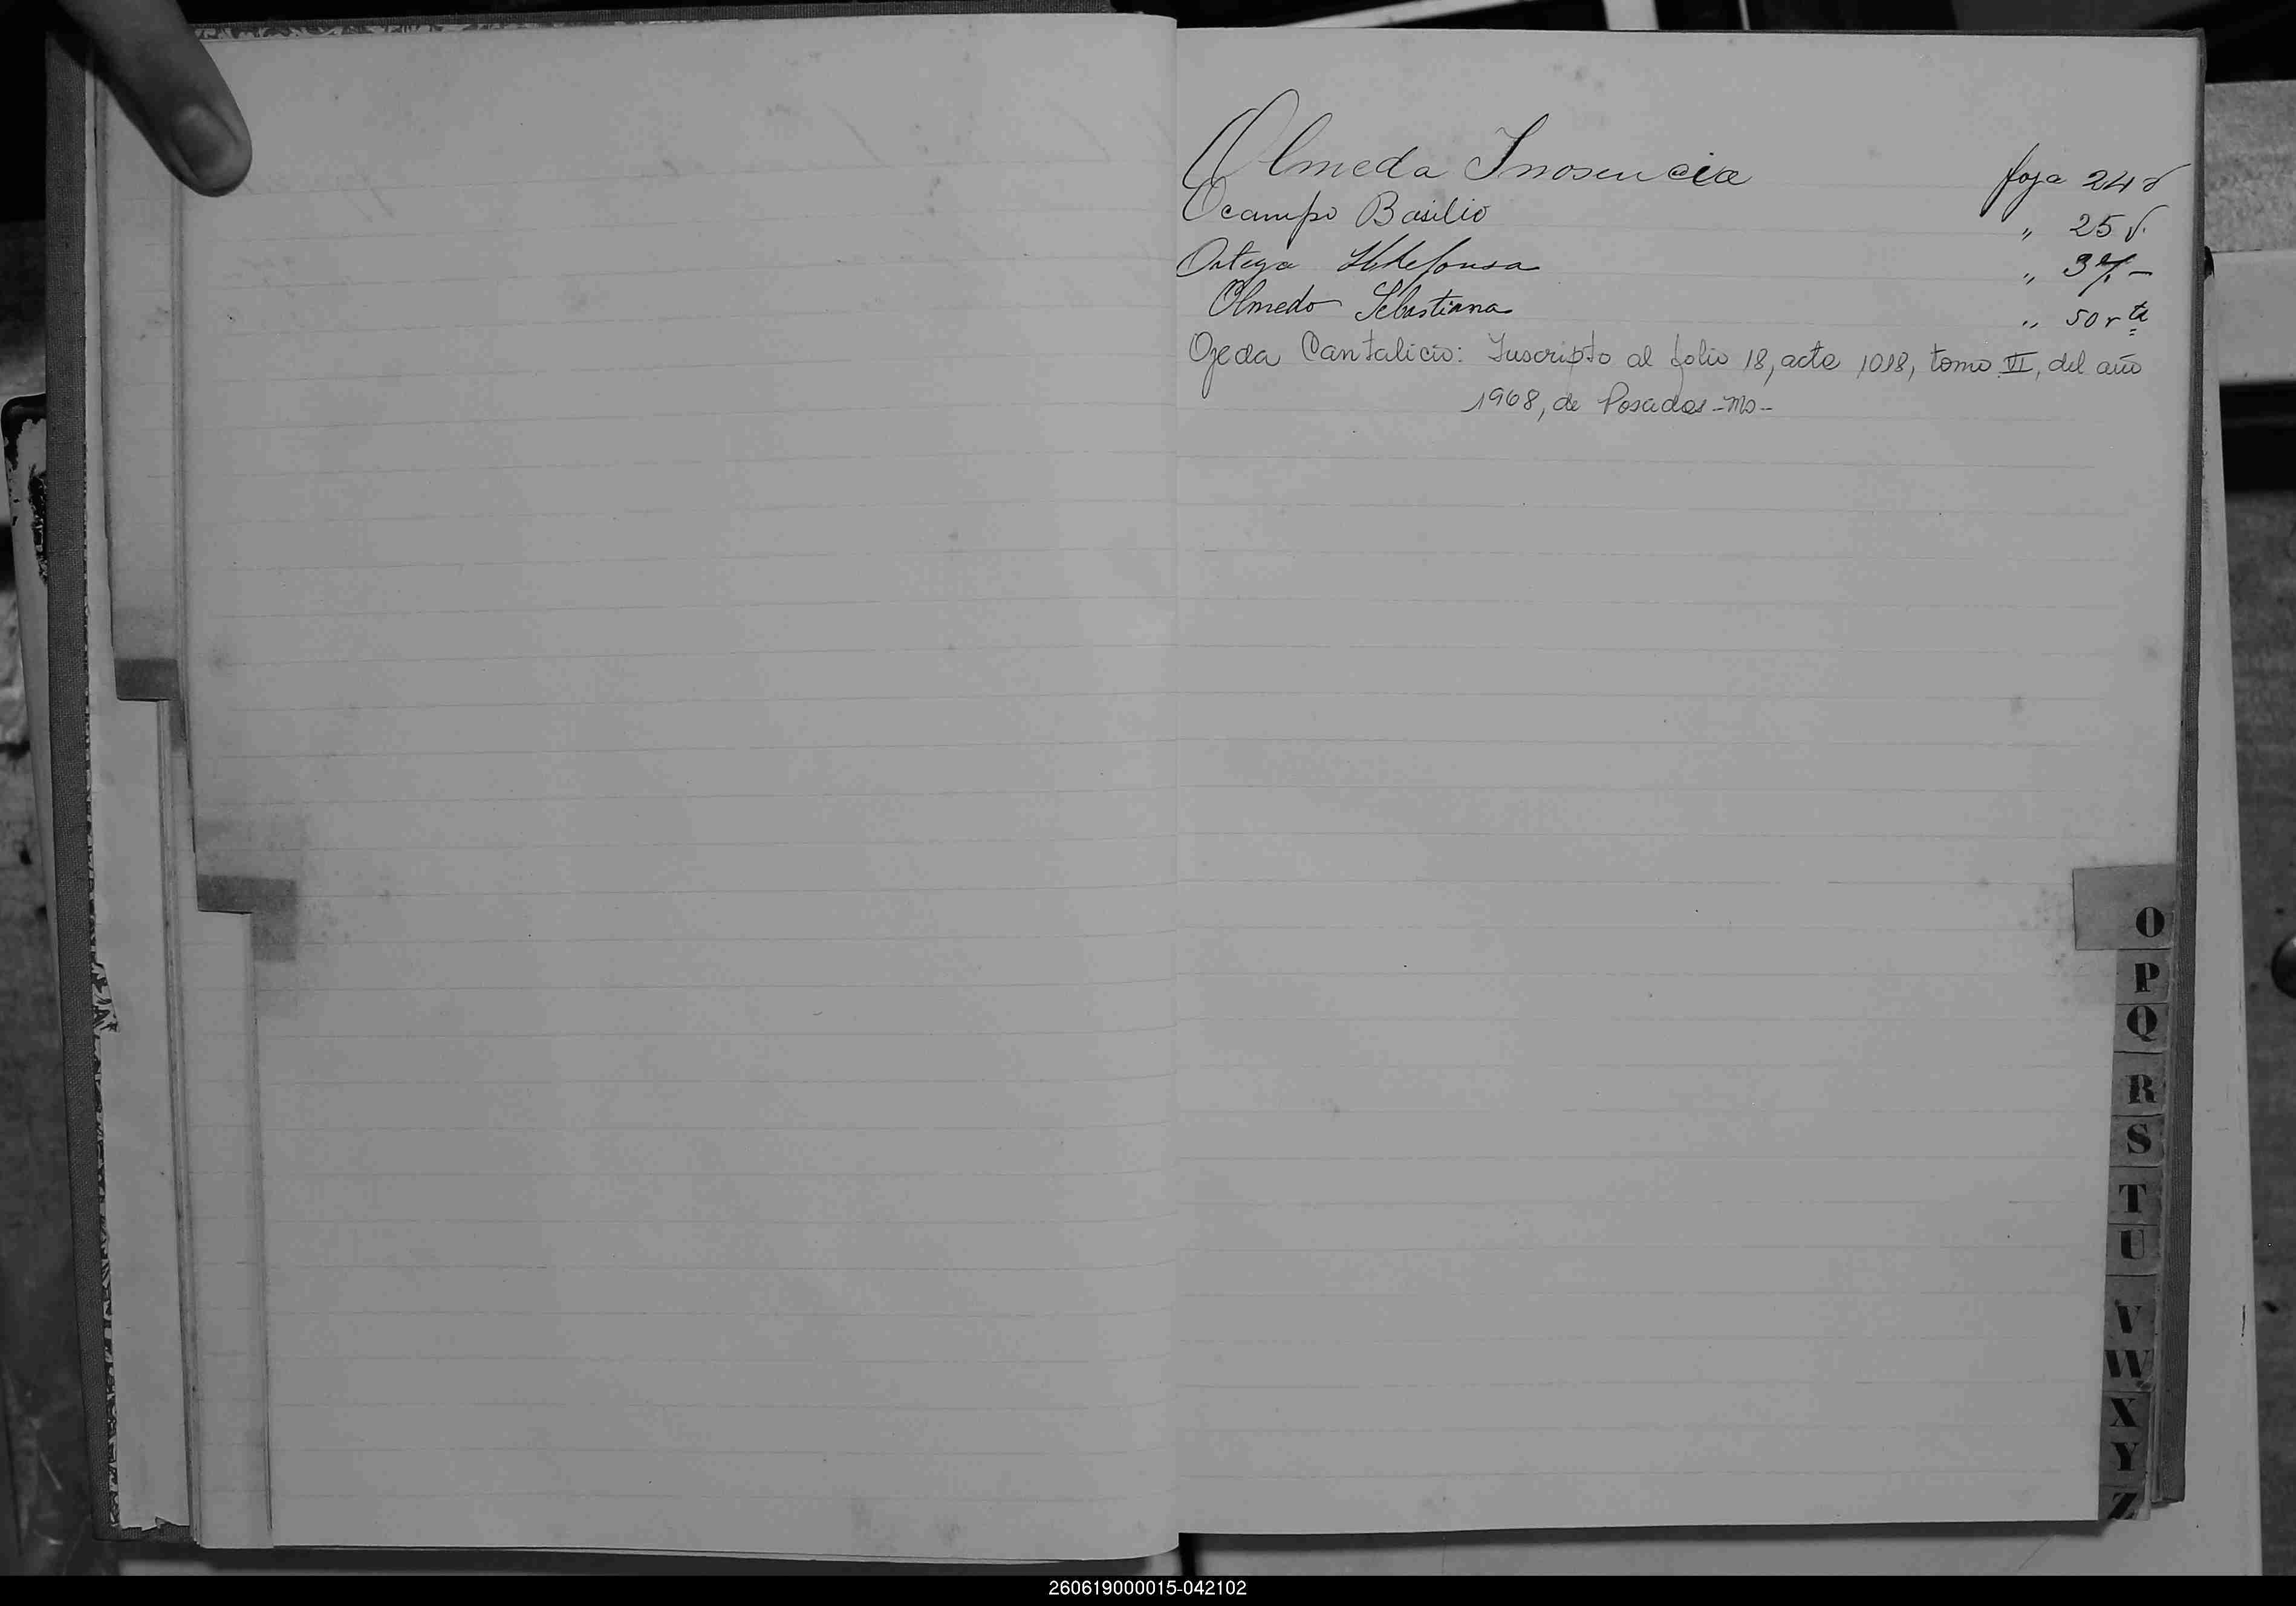 Olmeda Inosencia foja 24 v
Ocampo Basilio " 25 v.
Ortega Ildefonsa " 37 -
Olmedo Sebastiana " 50 vta
Ojeda Cantalicio: Inscripto al folio 18, acta 1018, tomo VI, del año
1968, de Posadas-Ms-
O
P
Q
R
S
T
U
V
W
X
Y
Z
260619000015-042102